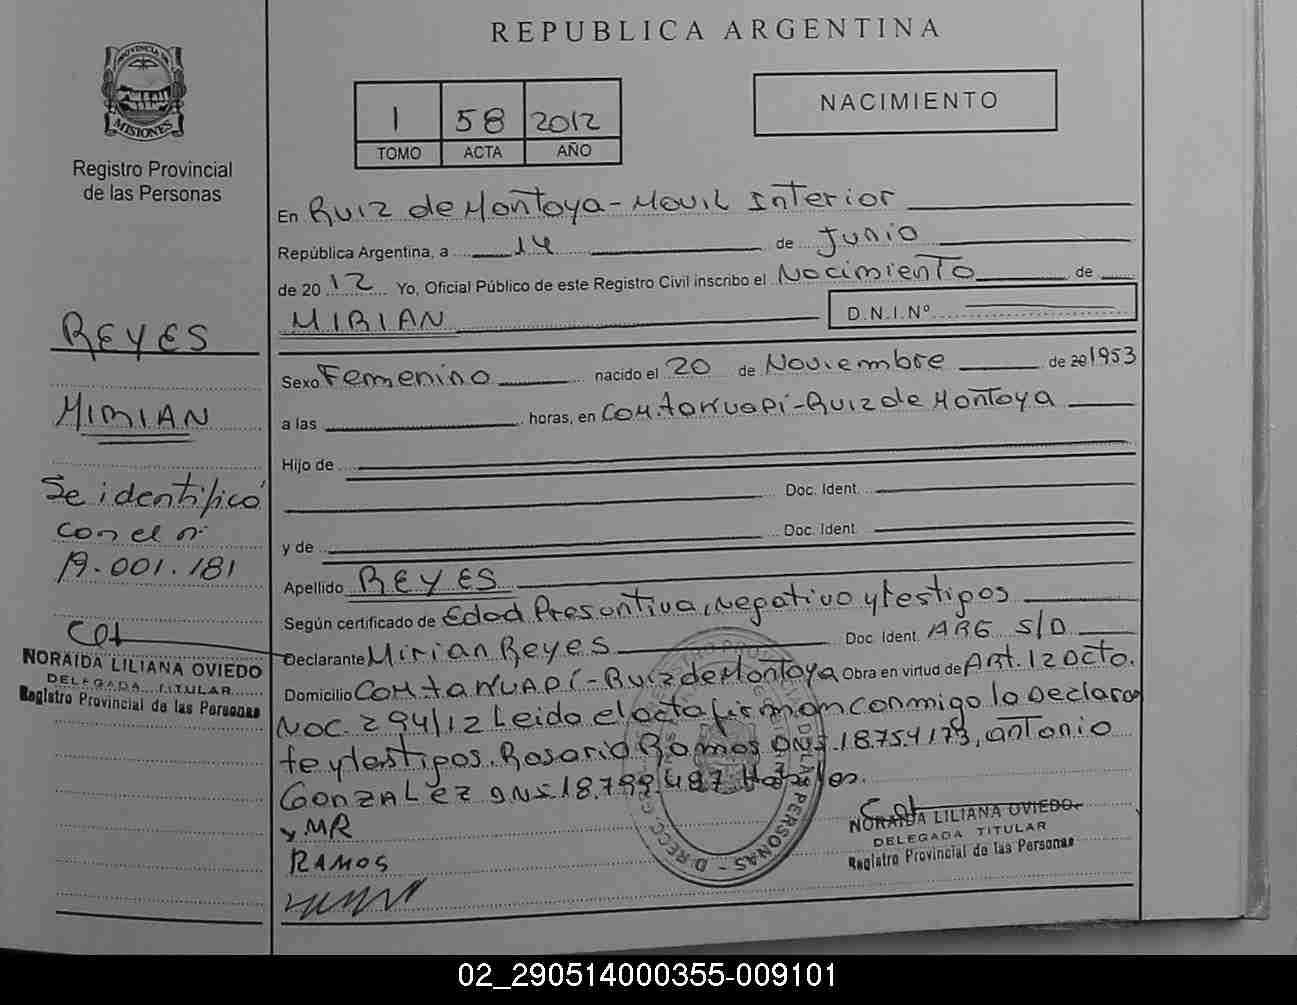 REPUBLICA ARGENTINA
PROVINCIA DE
MISIONES
Registro Provincial
de las Personas
1 58 2012
TOMO ACTA AÑO
NACIMIENTO
En Ruiz de Montoya - Movil Interior
República Argentina, a 14 de Junio
de 20 12 Yo, Oficial Público de este Registro Civil inscribo el Nacimiento de
MIRIAN
D.N.I.Nº
Sexo Femenino nacido el 20 de Noviembre de 20 1953
a las horas, en Com. takuapí - Ruiz de Montoya
Hijo de
Doc. Ident.
y de Doc. Ident.
Apellido REYES
Según certificado de Edad Presuntiva, negativo y testigos
Declarante Mirian Reyes Doc. Ident. ARG S/D
Domicilio Com. takuapí - Ruiz de Montoya Obra en virtud de Art. 12 Dcto.
Noc. 294/12 Leido el acta firman conmigo la Declaran
te y testigos. Rosario Ramos DNI. 18.754.173, antonio
GONZALEZ DNI 18.799.497 Habiles.
x MR
RAMOS
NORAIDA LILIANA OVIEDO
DELEGADA TITULAR
Registro Provincial de las Personas
REYES
MIRIAN
Se identificó
con el nº
19.001.181
NORAIDA LILIANA OVIEDO
DELEGADA TITULAR
Registro Provincial de las Personas
02_290514000355-009101